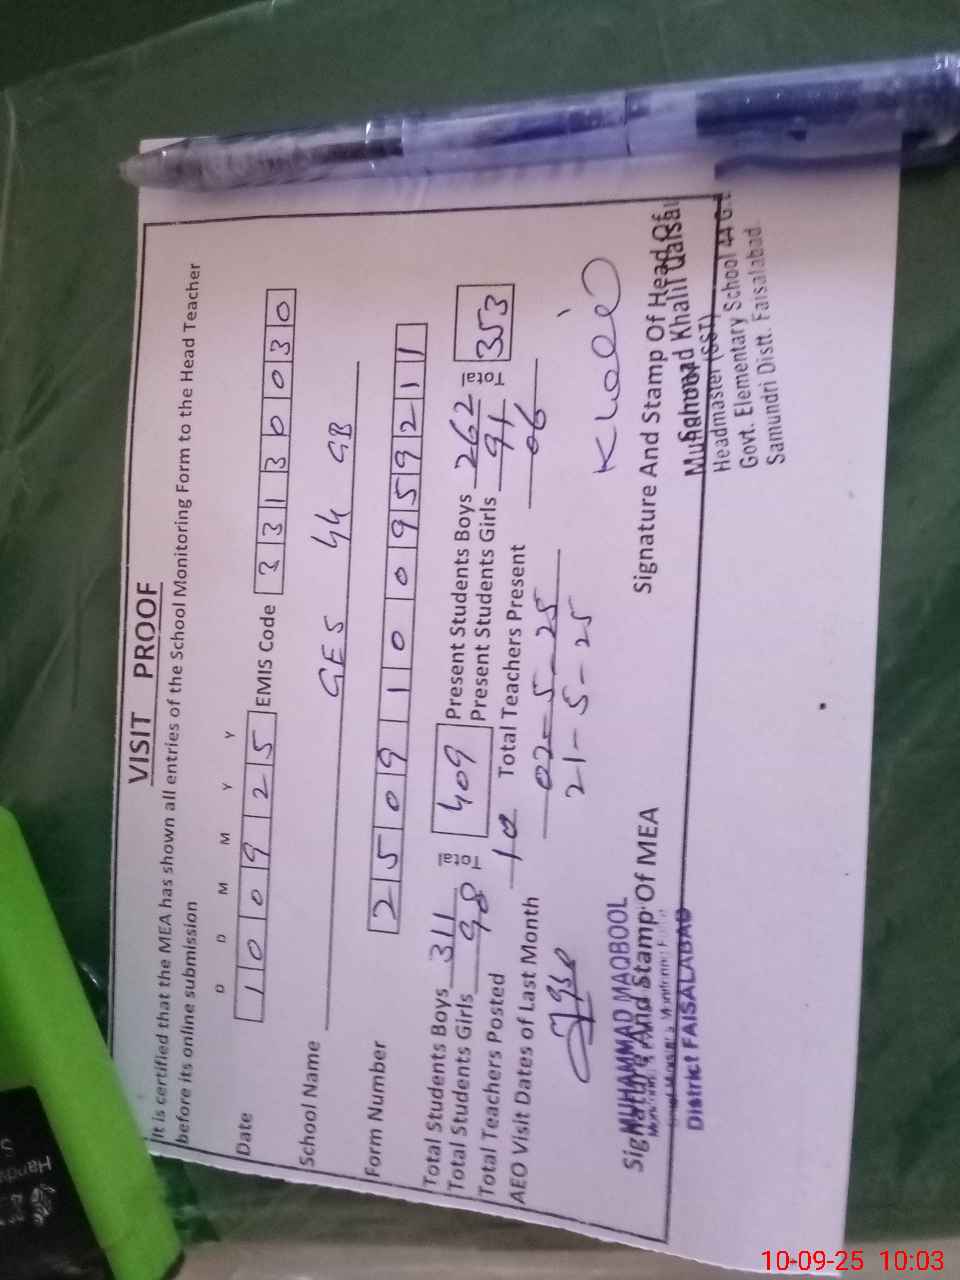 VISIT PROOF
It is certified that the MEA has shown all entries of the School Monitoring Form to the Head Teacher
before its online submission
D D M M Y Y
Date 1 0 0 9 2 5 EMIS Code 3 3 1 3 0 0 3 0
School Name GES 44 GB
Form Number 2 5 0 9 1 0 0 9 5 9 2 1 1
Total Students Boys 311 Total 409 Present Students Boys 262 Total 353
Total Students Girls 98 Present Students Girls 91
Total Teachers Posted 10 Total Teachers Present 06
AEO Visit Dates of Last Month 02-5-25
21-5-25
Khalil
Signature And Stamp Of MEA Signature And Stamp Of Head Of
MUHAMMAD MAQBOOL
District FAISALABAD
Muhammad Khalil
Headmaster (SST)
Govt. Elementary School 44 G.B
Samundri Distt. Faisalabad.
10-09-25 10:03